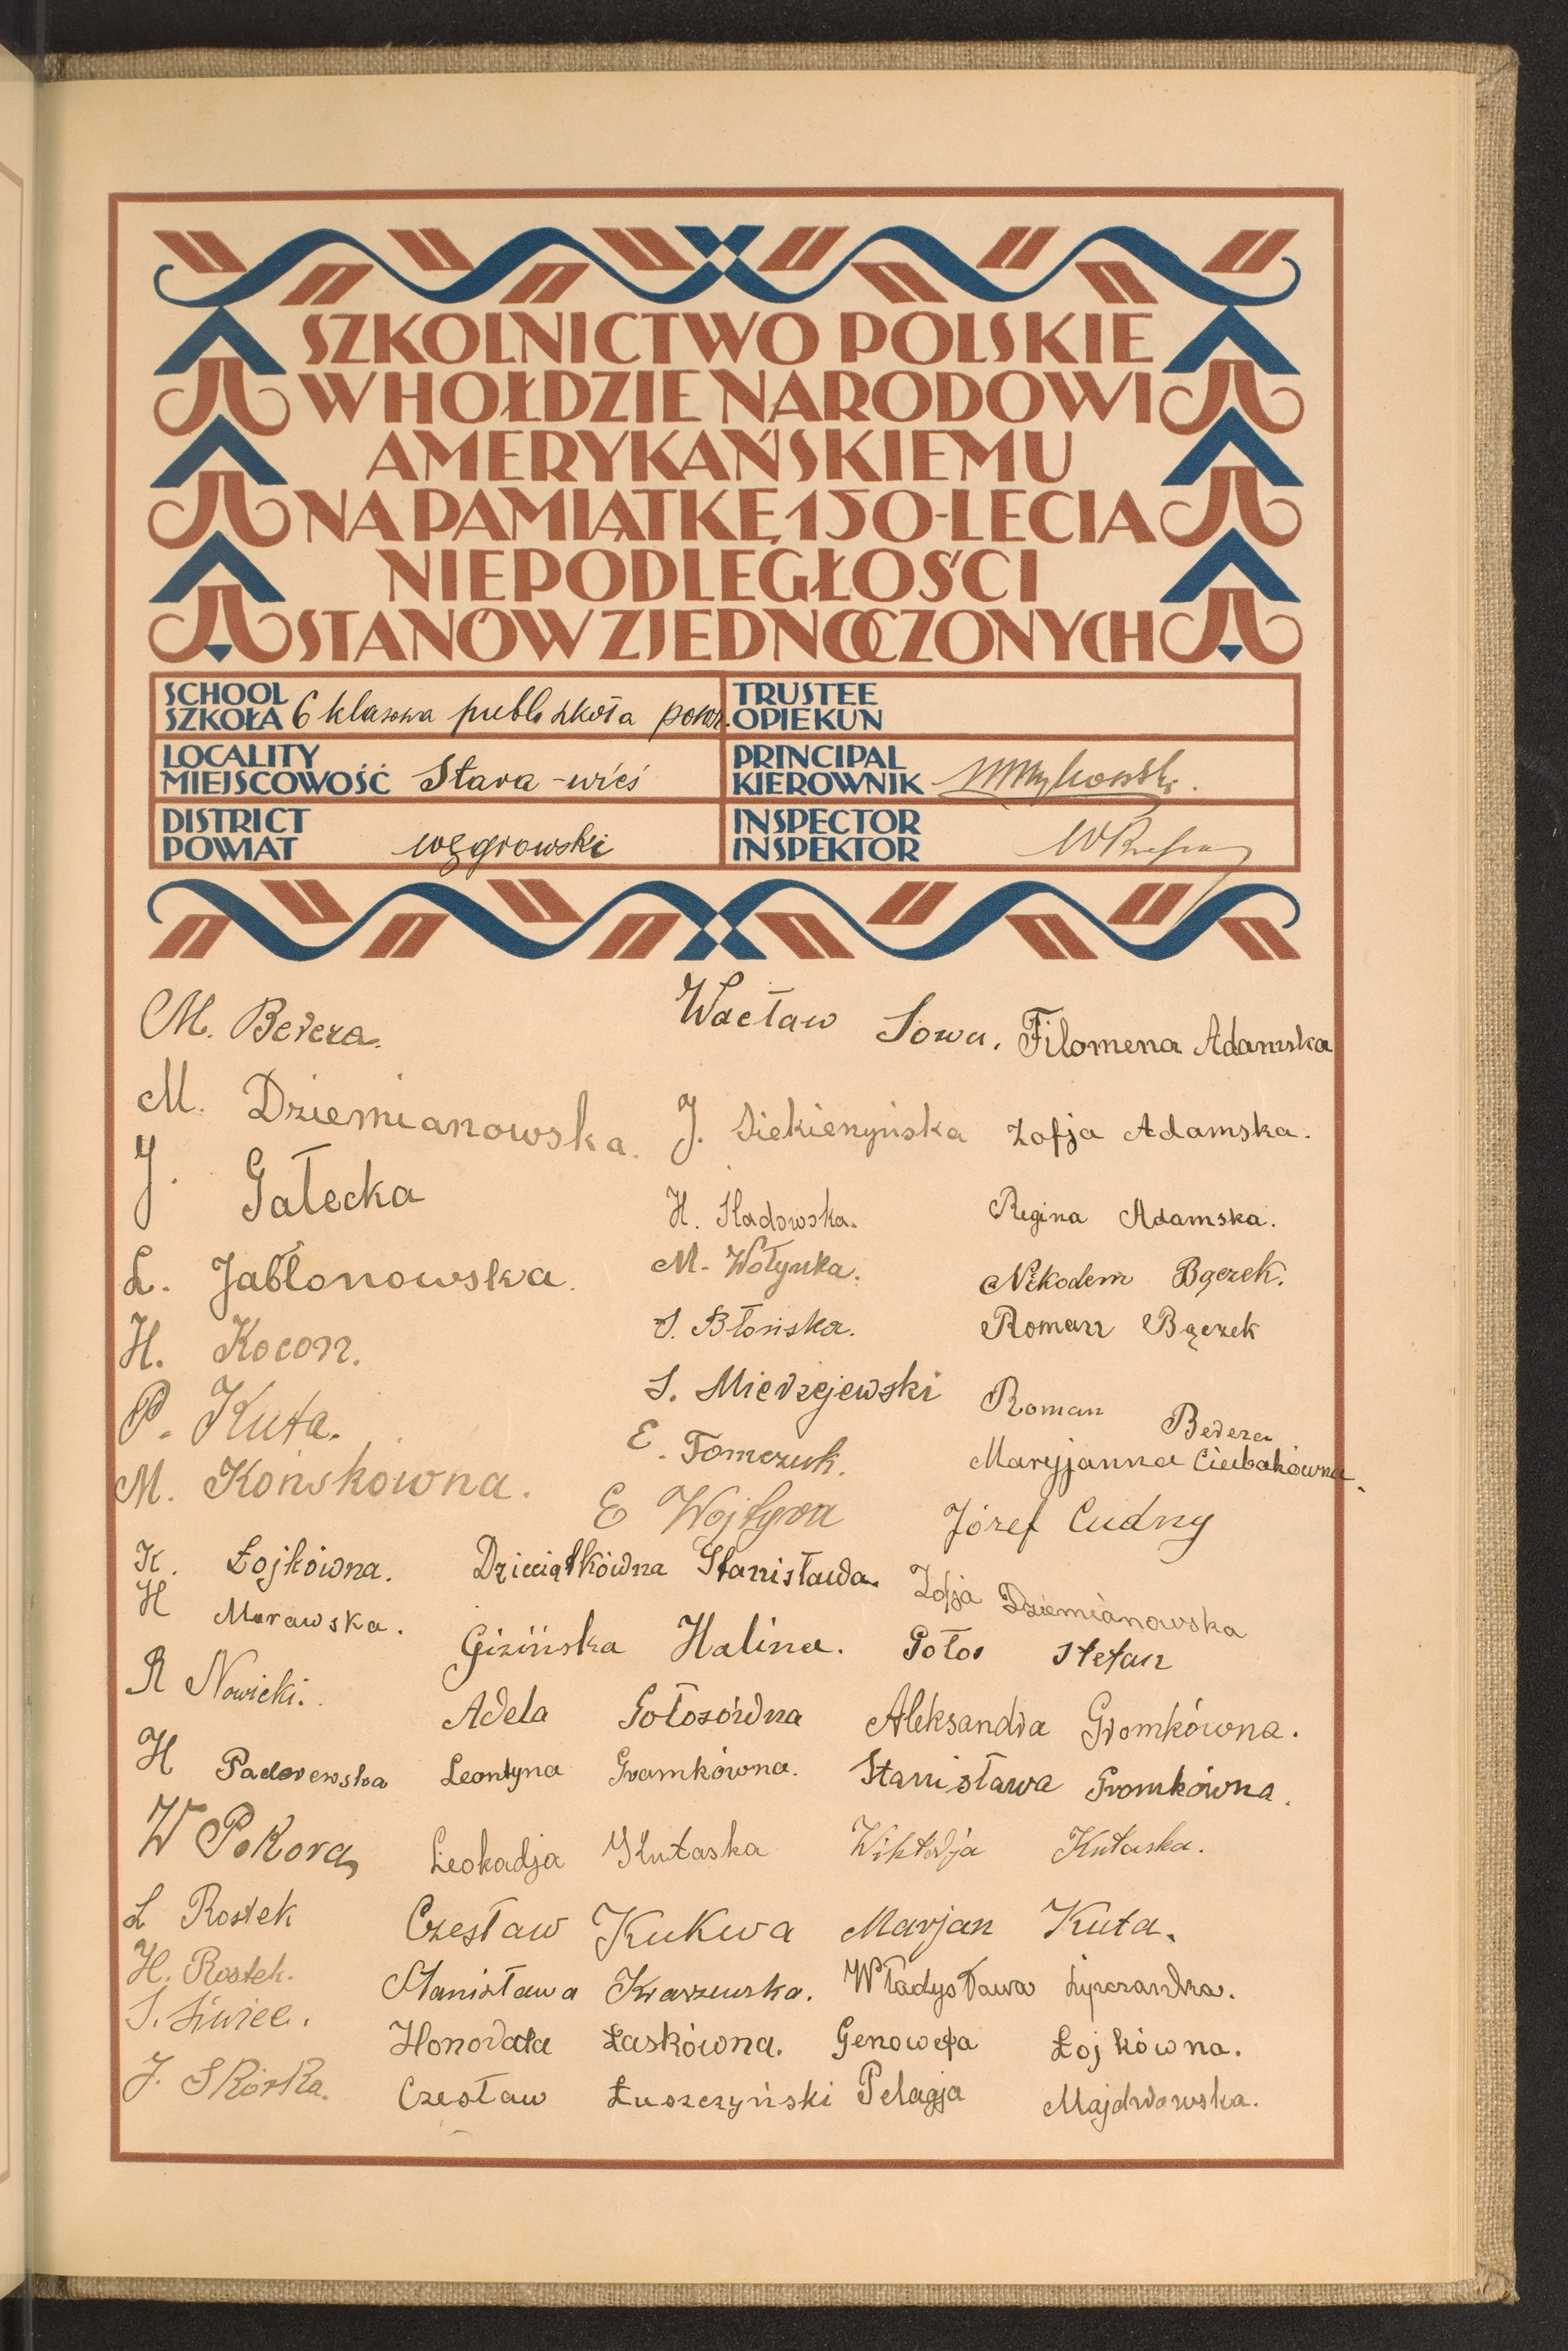 SZKOLNICTWO POLSKIE
W HOŁDZIE NARODOWI
AMERYKAŃSKIEMU
NA PAMIĄTKĘ 150-LECIA
NIEPODLEGŁOŚCI
STANÓW ZJEDNOCZONYCH
SCHOOL
SZKOŁA 6 klasowa publ. szkoła pow.
TRUSTEE
OPIEKUN
LOCALITY
MIEJSCOWOŚĆ Stara-wieś
PRINCIPAL
KIEROWNIK
DISTRICT
POWIAT węgrowski
INSPECTOR
INSPEKTOR
M. Bedera.
M. Dziemianowska.
J. Gałecka
L. Jabłonowska.
H. Kocon.
P. Kuta.
M. Końskówna.
K. Łojkówna.
H Marawska.
R Nowicki.
H Paderewska
W Pokora
L Rostek
H. Rostek.
S. Siwiec.
J. Skórka.
Wacław Sowa.
J. Siekierzyńska
H. Sladowska.
M. Wołynka.
S. Błońska.
S. Miedzejewski
E. Tomczuk.
E Wojtyra
Dzieciątkówna Stanisława.
Gizińska Halina.
Adela Gołosówna
Leontyna Gromkówna.
Leokadja Kutaska
Czesław Kukwa
Stanisława Kraszewska.
Honorata Łaskówna.
Czesław Łuszczyński
Filomena Adamska
Zofja Adamska.
Regina Adamska.
Nikodem Bączek.
Roman Bączek
Roman Bedera
Maryjanna Ciubakówna.
Józef Cudny
Zofja Dziemianowska
Gołos Stefan
Aleksandra Gromkówna.
Stanisława Gromkówna.
Wiktorja Kutaska.
Marjan Kuta.
Władysława
Genowefa Łojkówna.
Pelagja Majdworska.